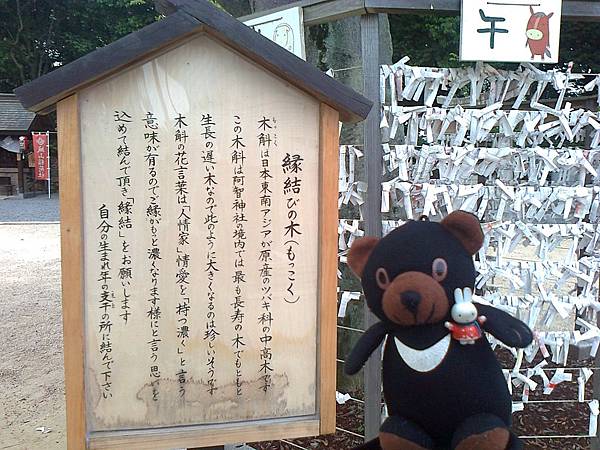 縁結びの木(もっこく)
木斛は日本東南アジアが原産のツバキ科の中高木です
この木斛は阿智神社の境内では最も長寿の木でもともと
生長の遅い木なので此のように大きくなるのは珍しいそうです
木斛の花言葉は「人情家」情愛を「持つ濃く」と言う
意味が有るのでご縁がもっと濃くなります様にと言う思いを
込めて結んで頂き「縁結」をお願いします
自分の生まれ年の支干の所に結んで下さい
午